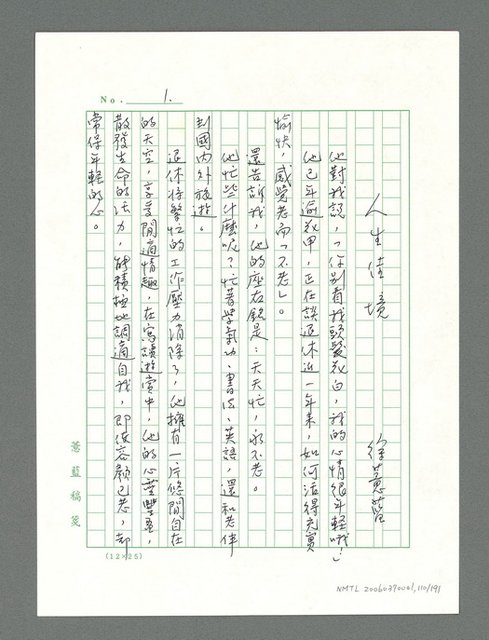 No. 1.
人生佳境
徐蕙藍
他對我說，「你別看我頭髮花白，我的心情很年輕哦！」
他已年逾花甲，正在談退休近一年來，如何活得充實
愉快，感覺老而「不老」。
還告訴我，他的座右銘是：天天忙，永不老。
他忙些什麼呢？忙著學氣功、書法、英語，還和老伴
到國內外旅遊。
退休將繁忙的工作壓力消除了，他擁有一片悠閒自在
的天空，享受閒適情趣，在寫讀遊賞中，他的心靈豐盈，
散發生命的活力，能積極地調適自我，即使容顏已老，却
常保年輕的心。
蕙藍稿箋
(12×25)
NMTL 20060390041, 110/191